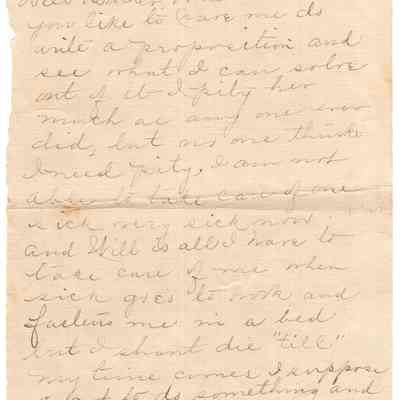 you like to have me do
write a proposition and
see what I can solve
out of it I pity her
much as any one ever
did, but no one thinks
I need pity, I am not
able to take care of one
sick very sick now.
and Will is all I have to
take care of me when
sick goes to work and
fastens me in a bed
but I shant die "till"
my time comes I suppose
to do something and